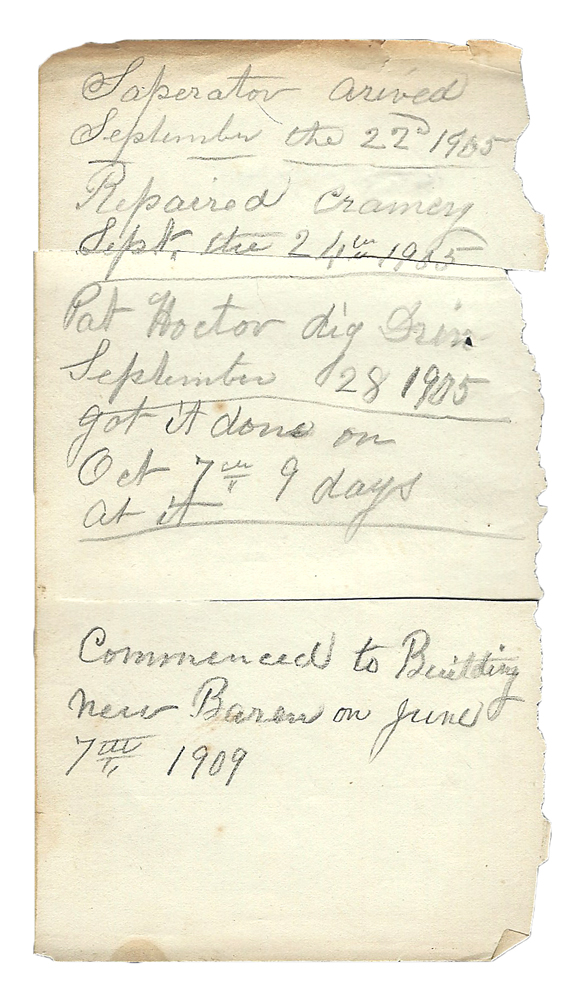 Saperator arived
September the 22ᴰ 1905
Repaired Cramery
Sept. the 24th 1905
Pat Hoctor dig Drin
September 28 1905
got it done on
Oct 7th 9 days
at it
Commenced to Building
new Baren on June
7th 1909